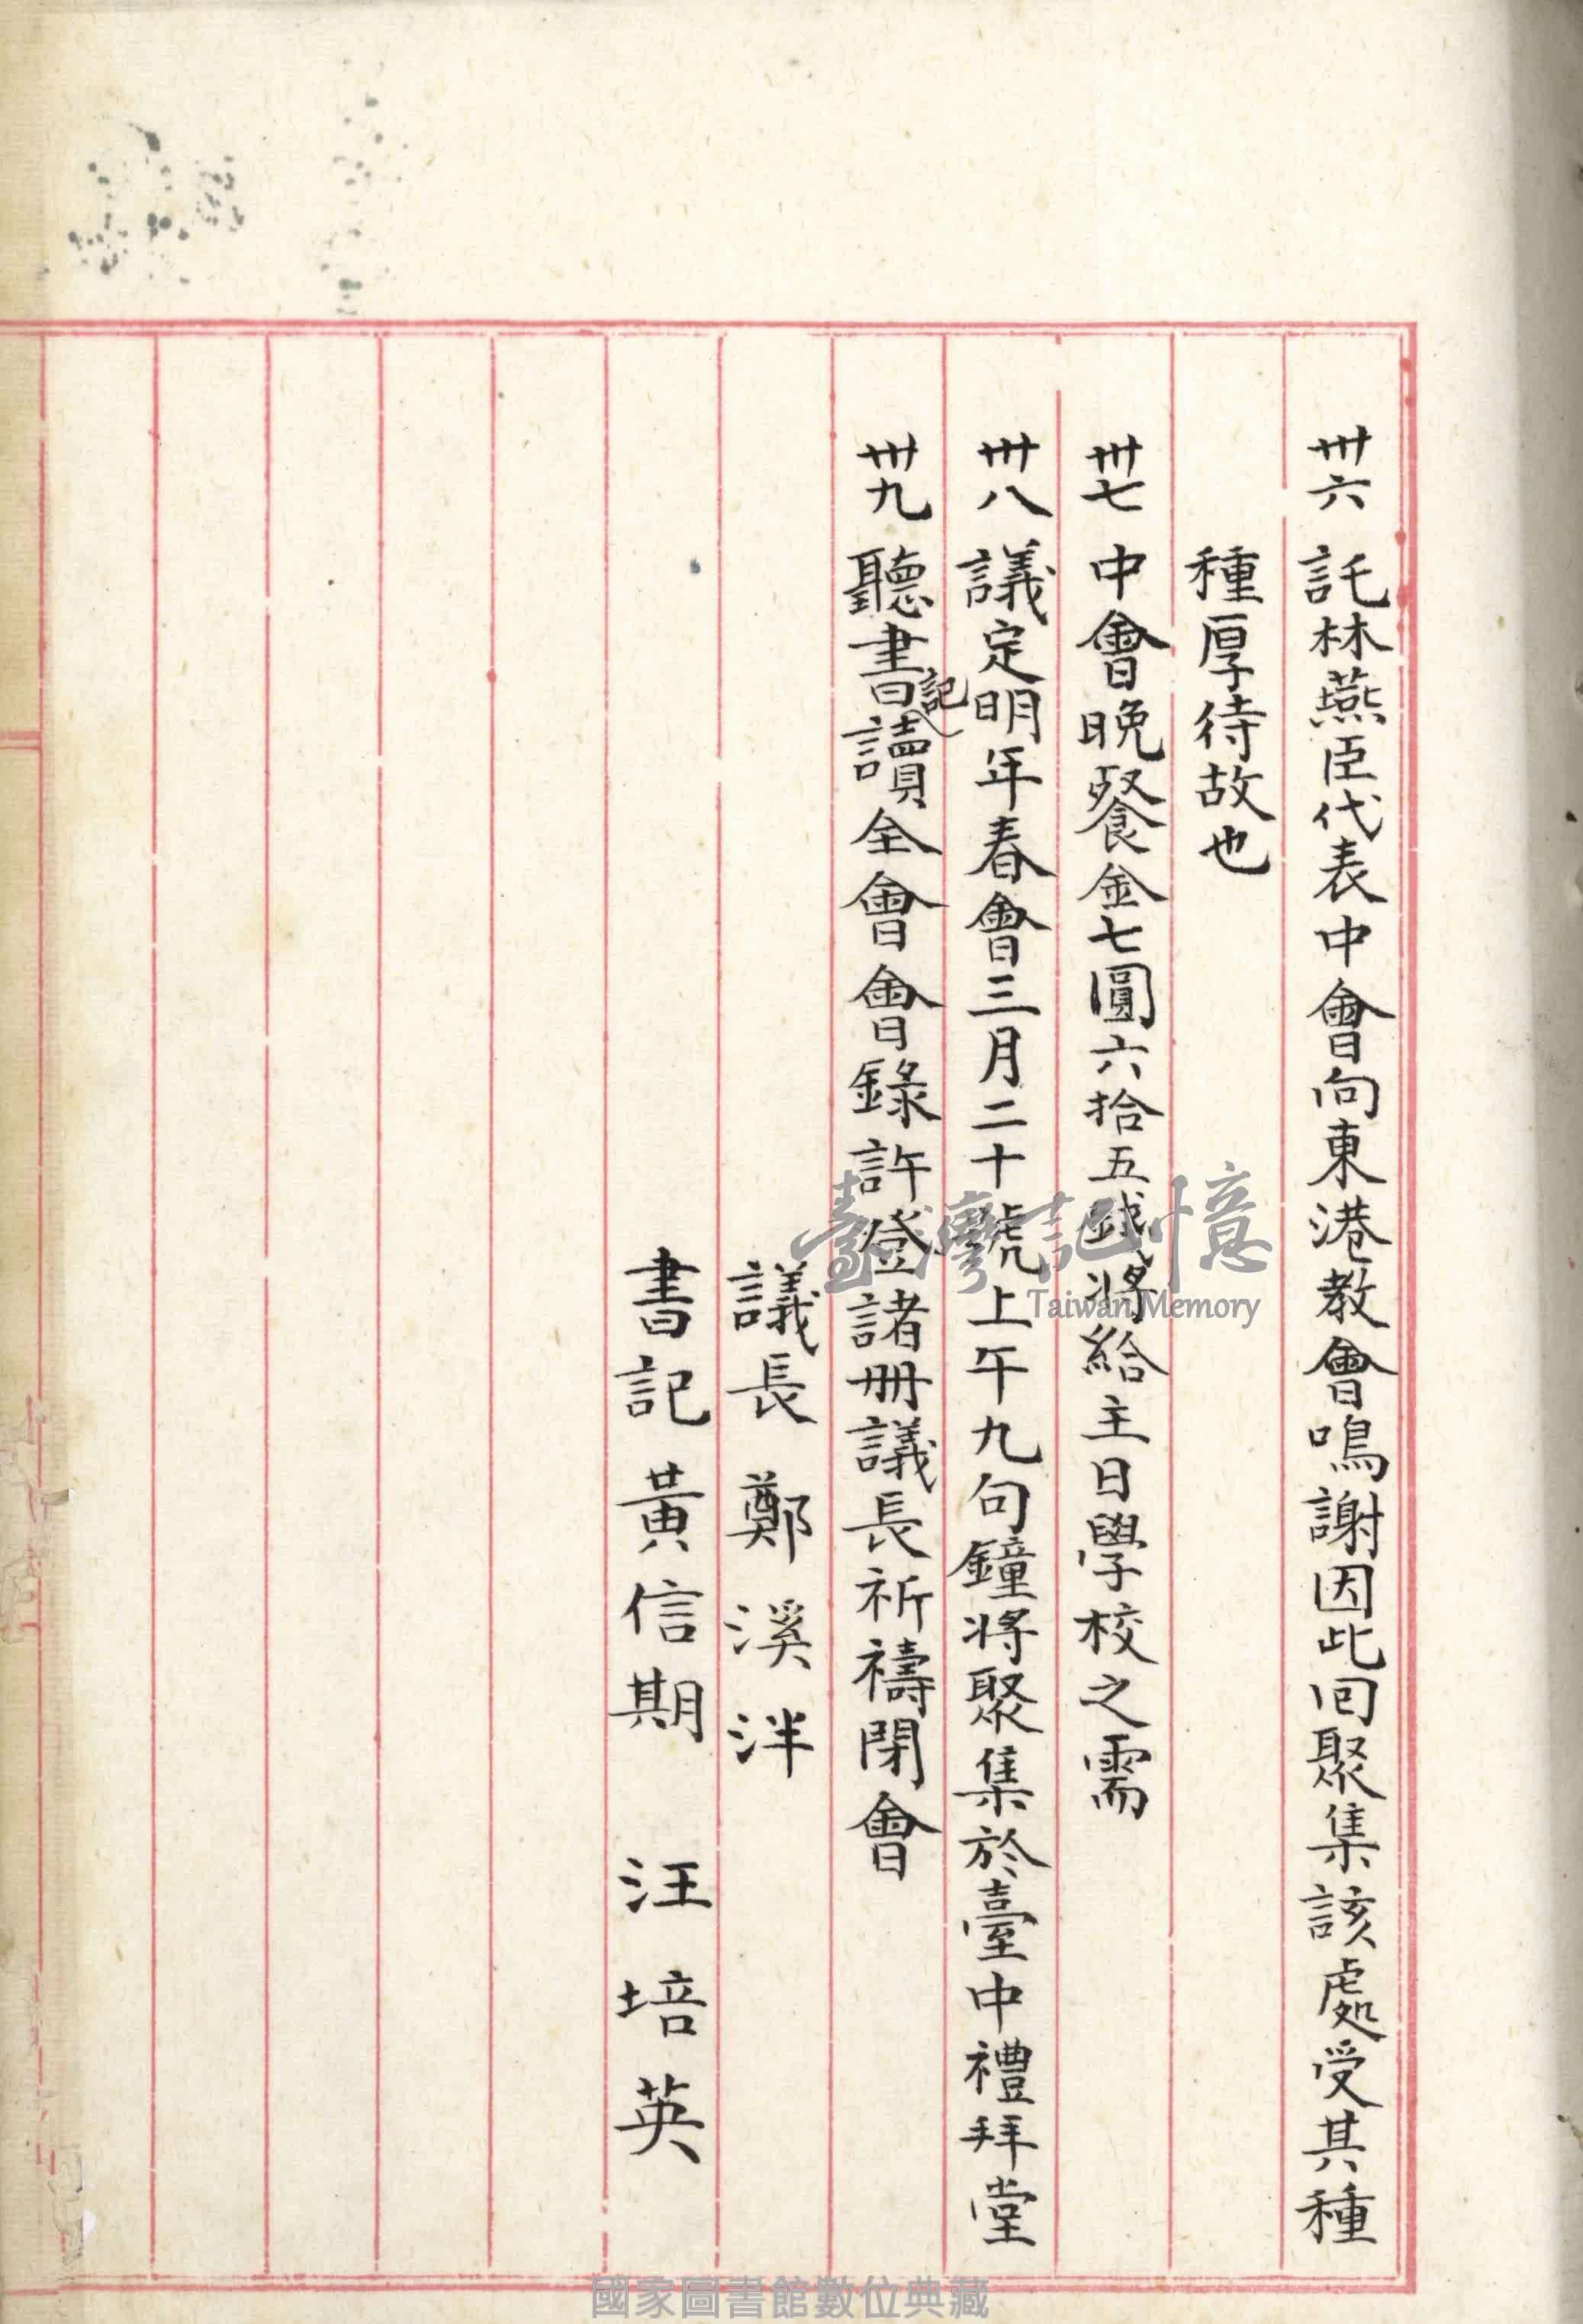 卅六 託林燕臣代表中會向東港教會鳴謝因此回聚集該處受其種
種厚待故也
卅七 中會晚餐金七圓六拾五錢將給主日學校之需
卅八 議定明年春會三月二十號上午九句鐘將聚集於臺中禮拜堂
卅九 聽書記讀全會會錄許登諸冊議長祈禱閉會
議長 鄭溪泮
書記 黃信期 汪培英
臺灣記憶
Taiwan Memory
國家圖書館數位典藏